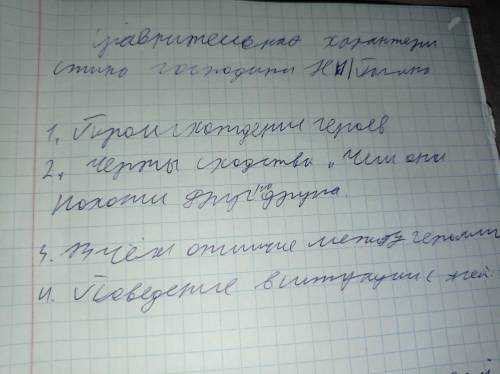 Сравнительная характери
стика господина НН/Гагина
1. Происхождение героев
2. Черты сходства. Чем они
похожи друг на друга.
3. В чём отличие между героями
4. Поведение в ситуации с